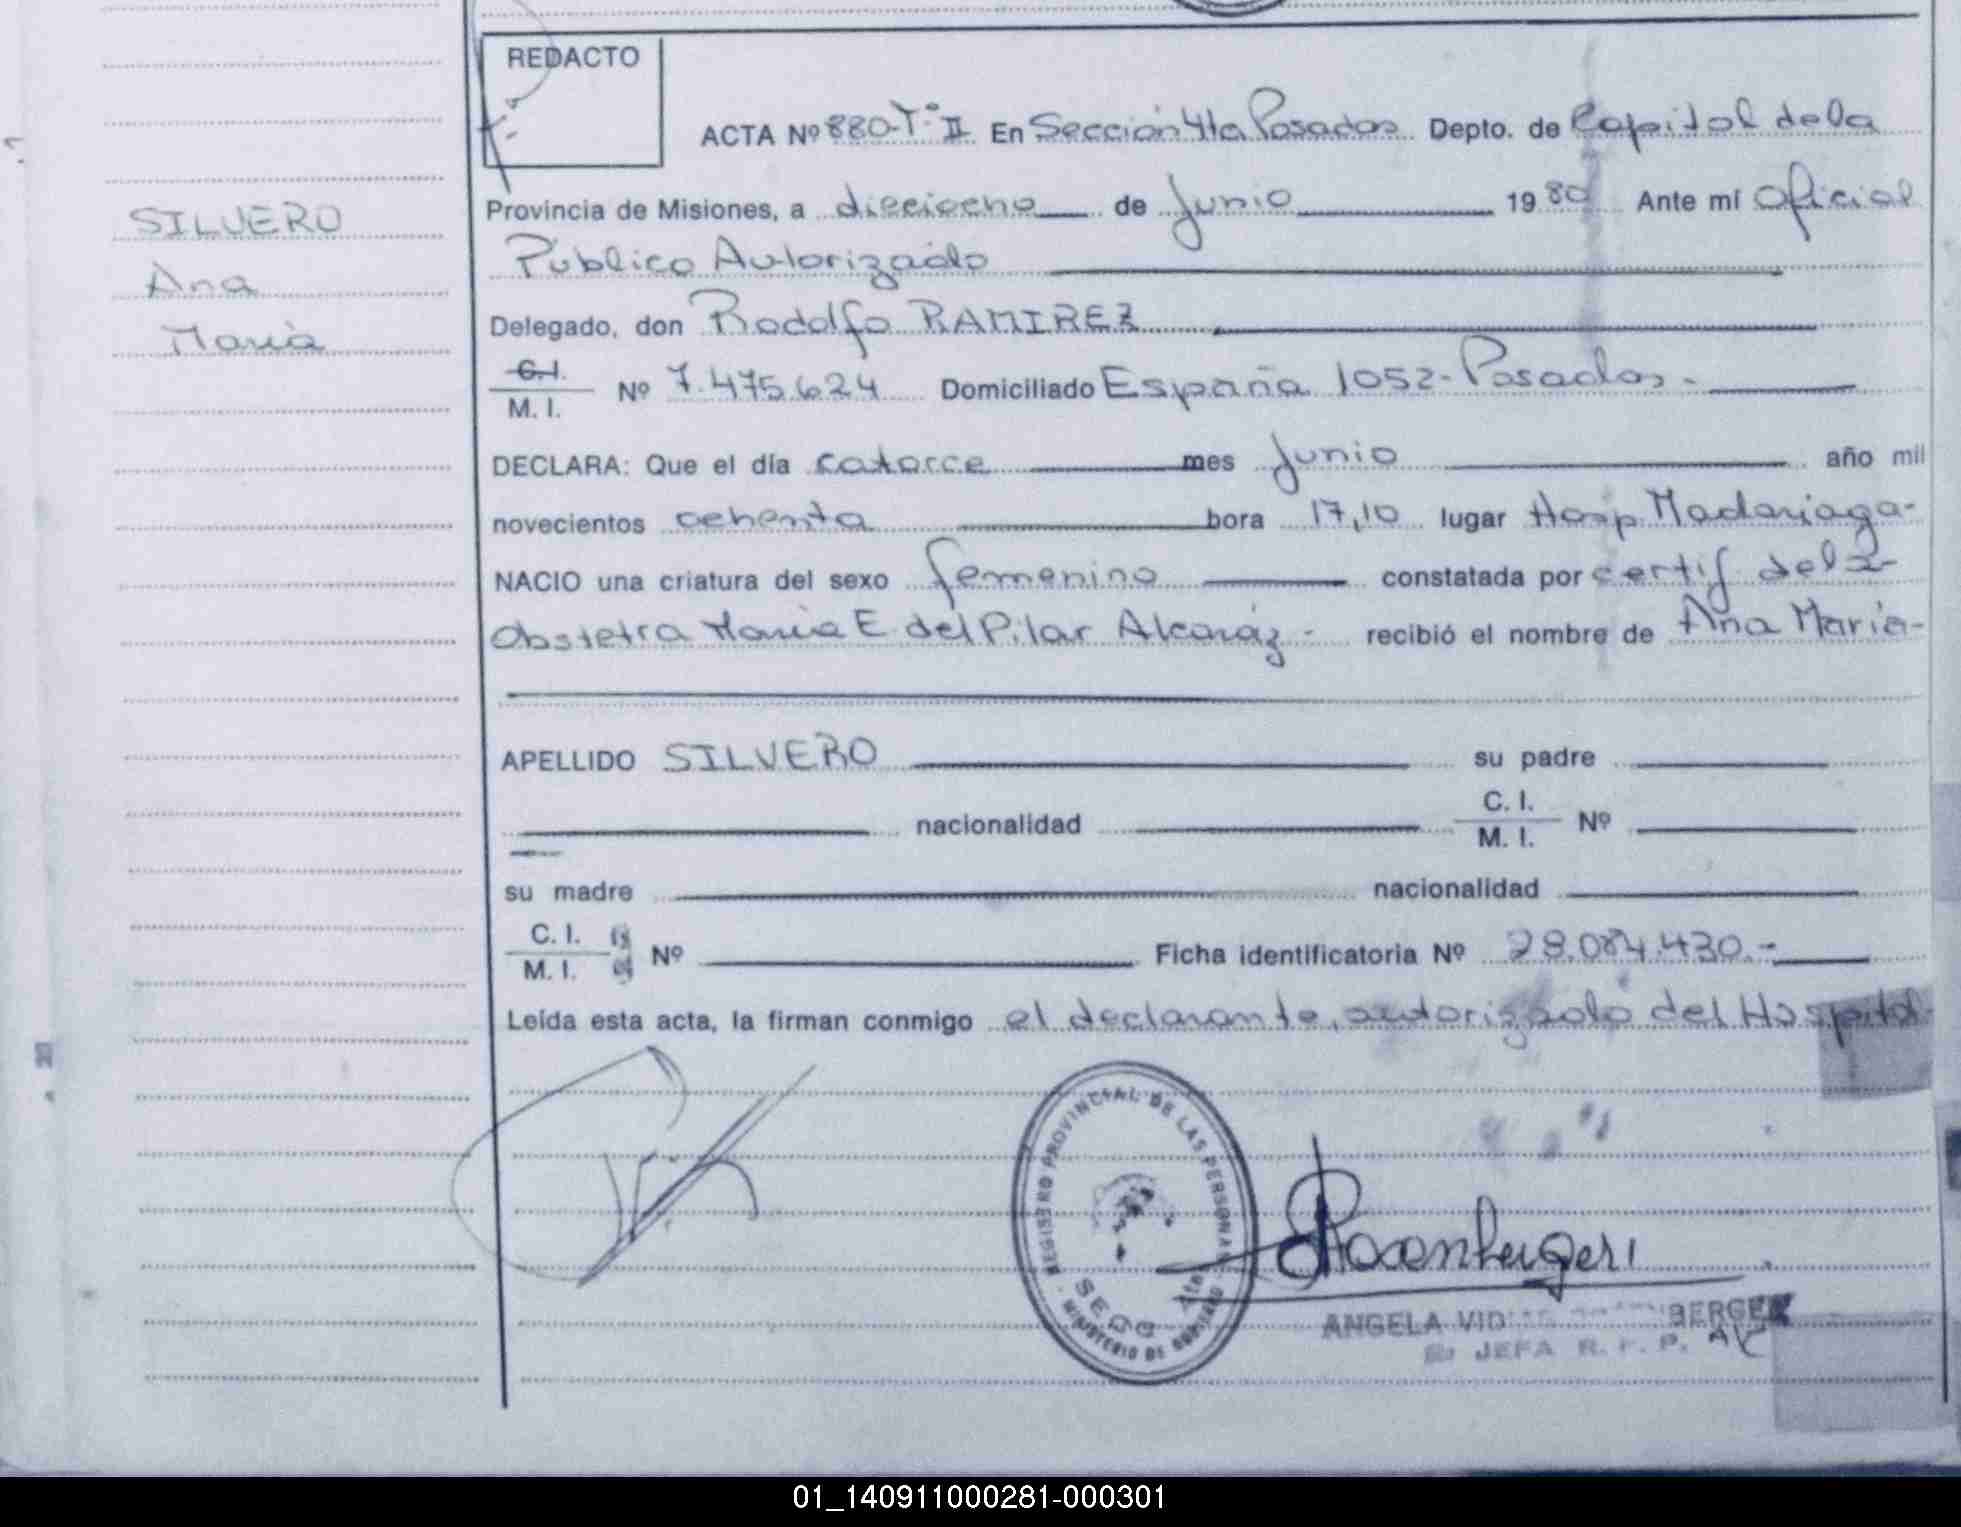 REDACTO
ACTA Nº 880-Tº II En Sección 4ta Posadas Depto. de Capital de la
Provincia de Misiones, a dieciocho de Junio 1980 Ante mí Oficial
Público Autorizado
Delegado, don Rodolfo RAMIREZ
C.I.
M. I. Nº 7.475.624 Domiciliado España 1052-Posadas-
DECLARA: Que el día catorce mes Junio año mil
novecientos ochenta hora 17,10 lugar Hosp. Madariaga-
NACIO una criatura del sexo femenino constatada por certif de la-
Obstetra María E. del Pilar Alcaráz- recibió el nombre de Ana María-
APELLIDO SILVERO su padre
nacionalidad C. I.
M. I. Nº
su madre nacionalidad
C. I.
M. I. Nº Ficha identificatoria Nº 28.084.430.-
Leída esta acta, la firman conmigo el declarante, autorizado del Hospital
SILVERO
Ana
María
REGISTRO PROVINCIAL DE LAS PERSONAS
SECC 4ta
MINISTERIO DE GOBIERNO
ANGELA BERGER
JEFA R. P. P.
01_140911000281-000301